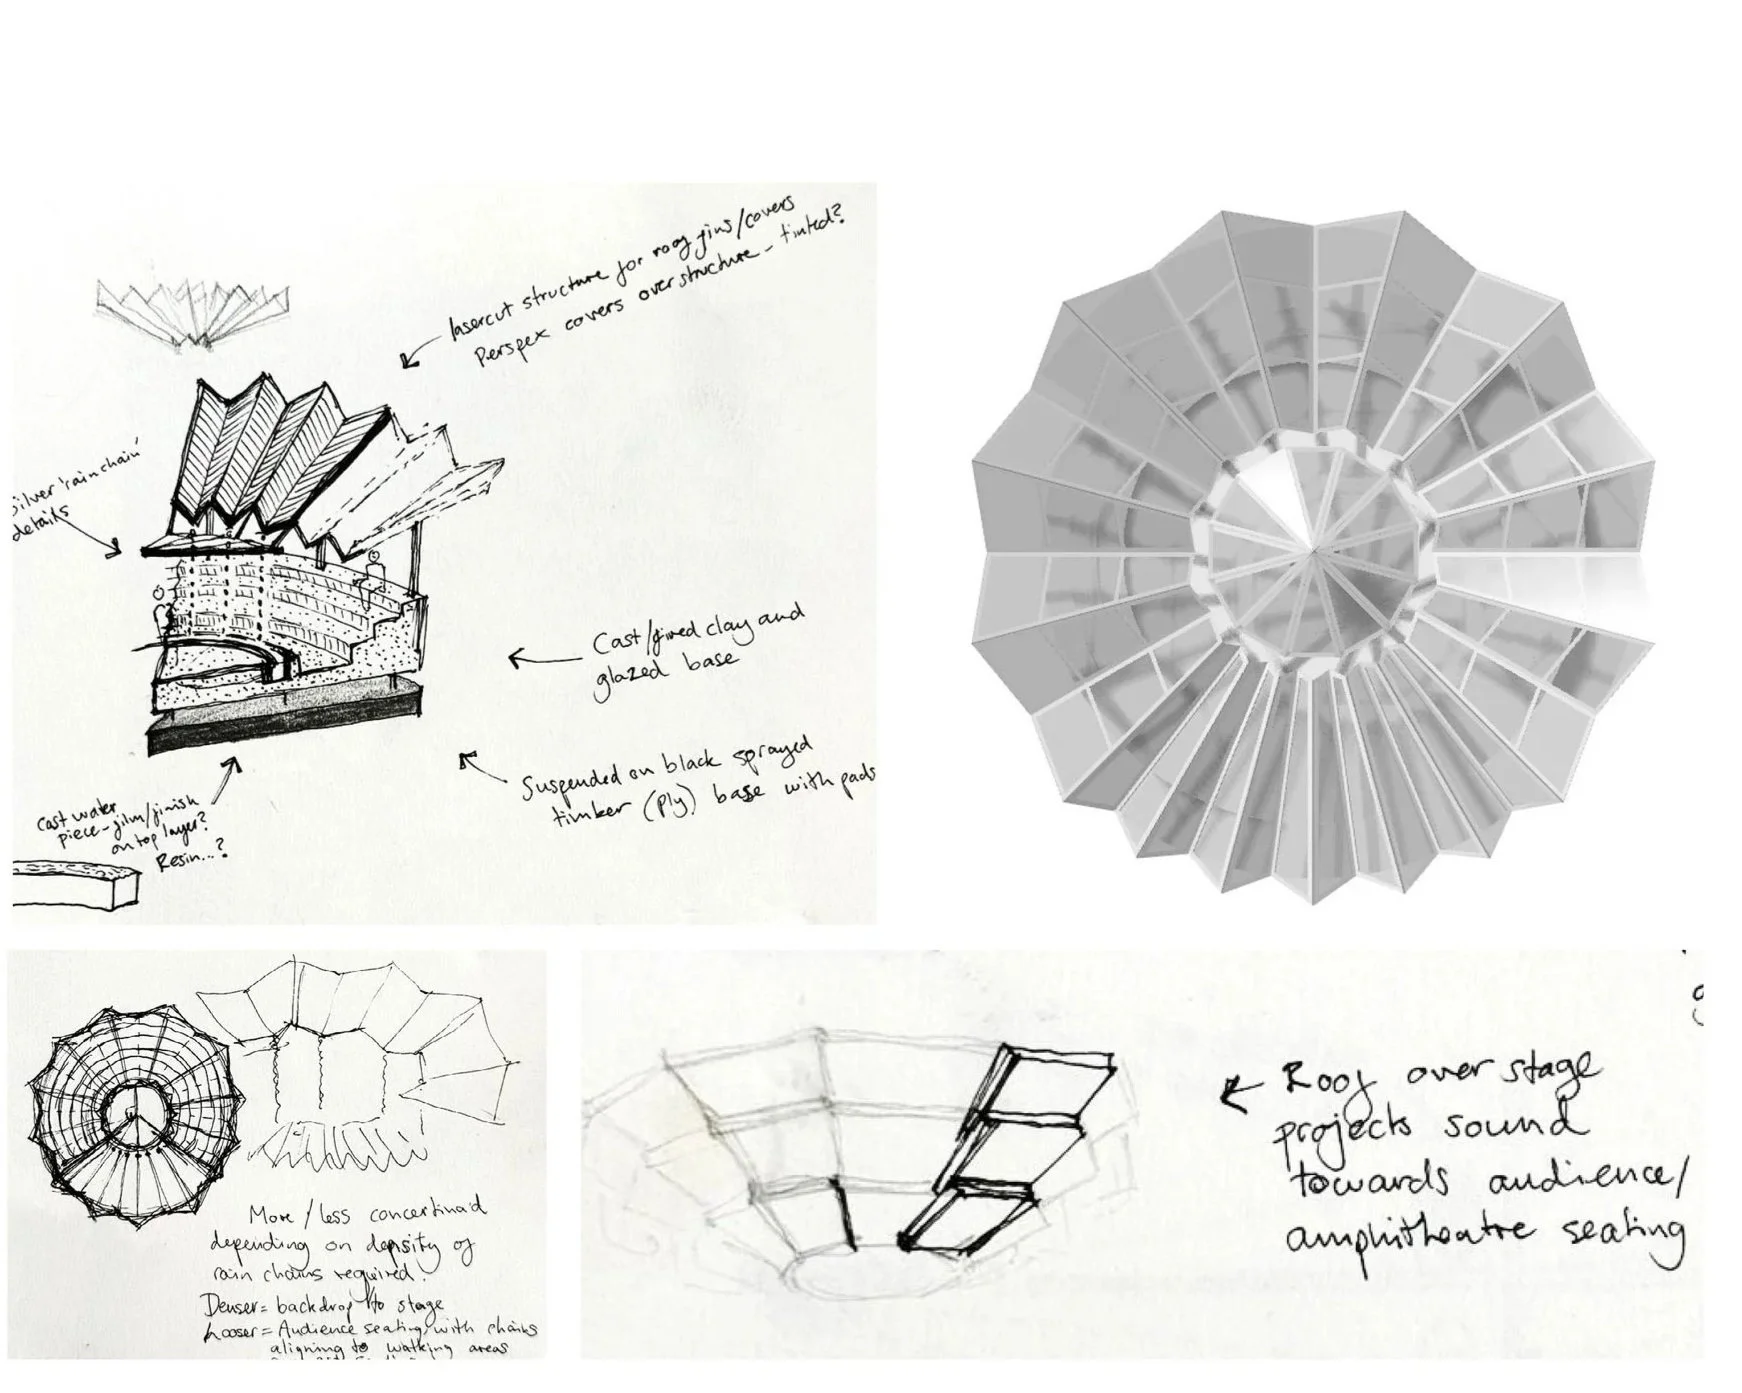 lasercut structure for roof fins/covers
Perspex covers over structure - tinted?
silver 'rain chain'
details
Cast/fired clay and
glazed base
Suspended on black sprayed
timber (ply) base with pads
cast water
piece - film/finish
on top layer?
Resin...?
More / less concertina'd
depending on density of
rain chains required.
Denser = backdrop to stage
Looser = Audience seating, with chains
aligning to walking areas
Roof over stage
projects sound
towards audience/
amphitheatre seating